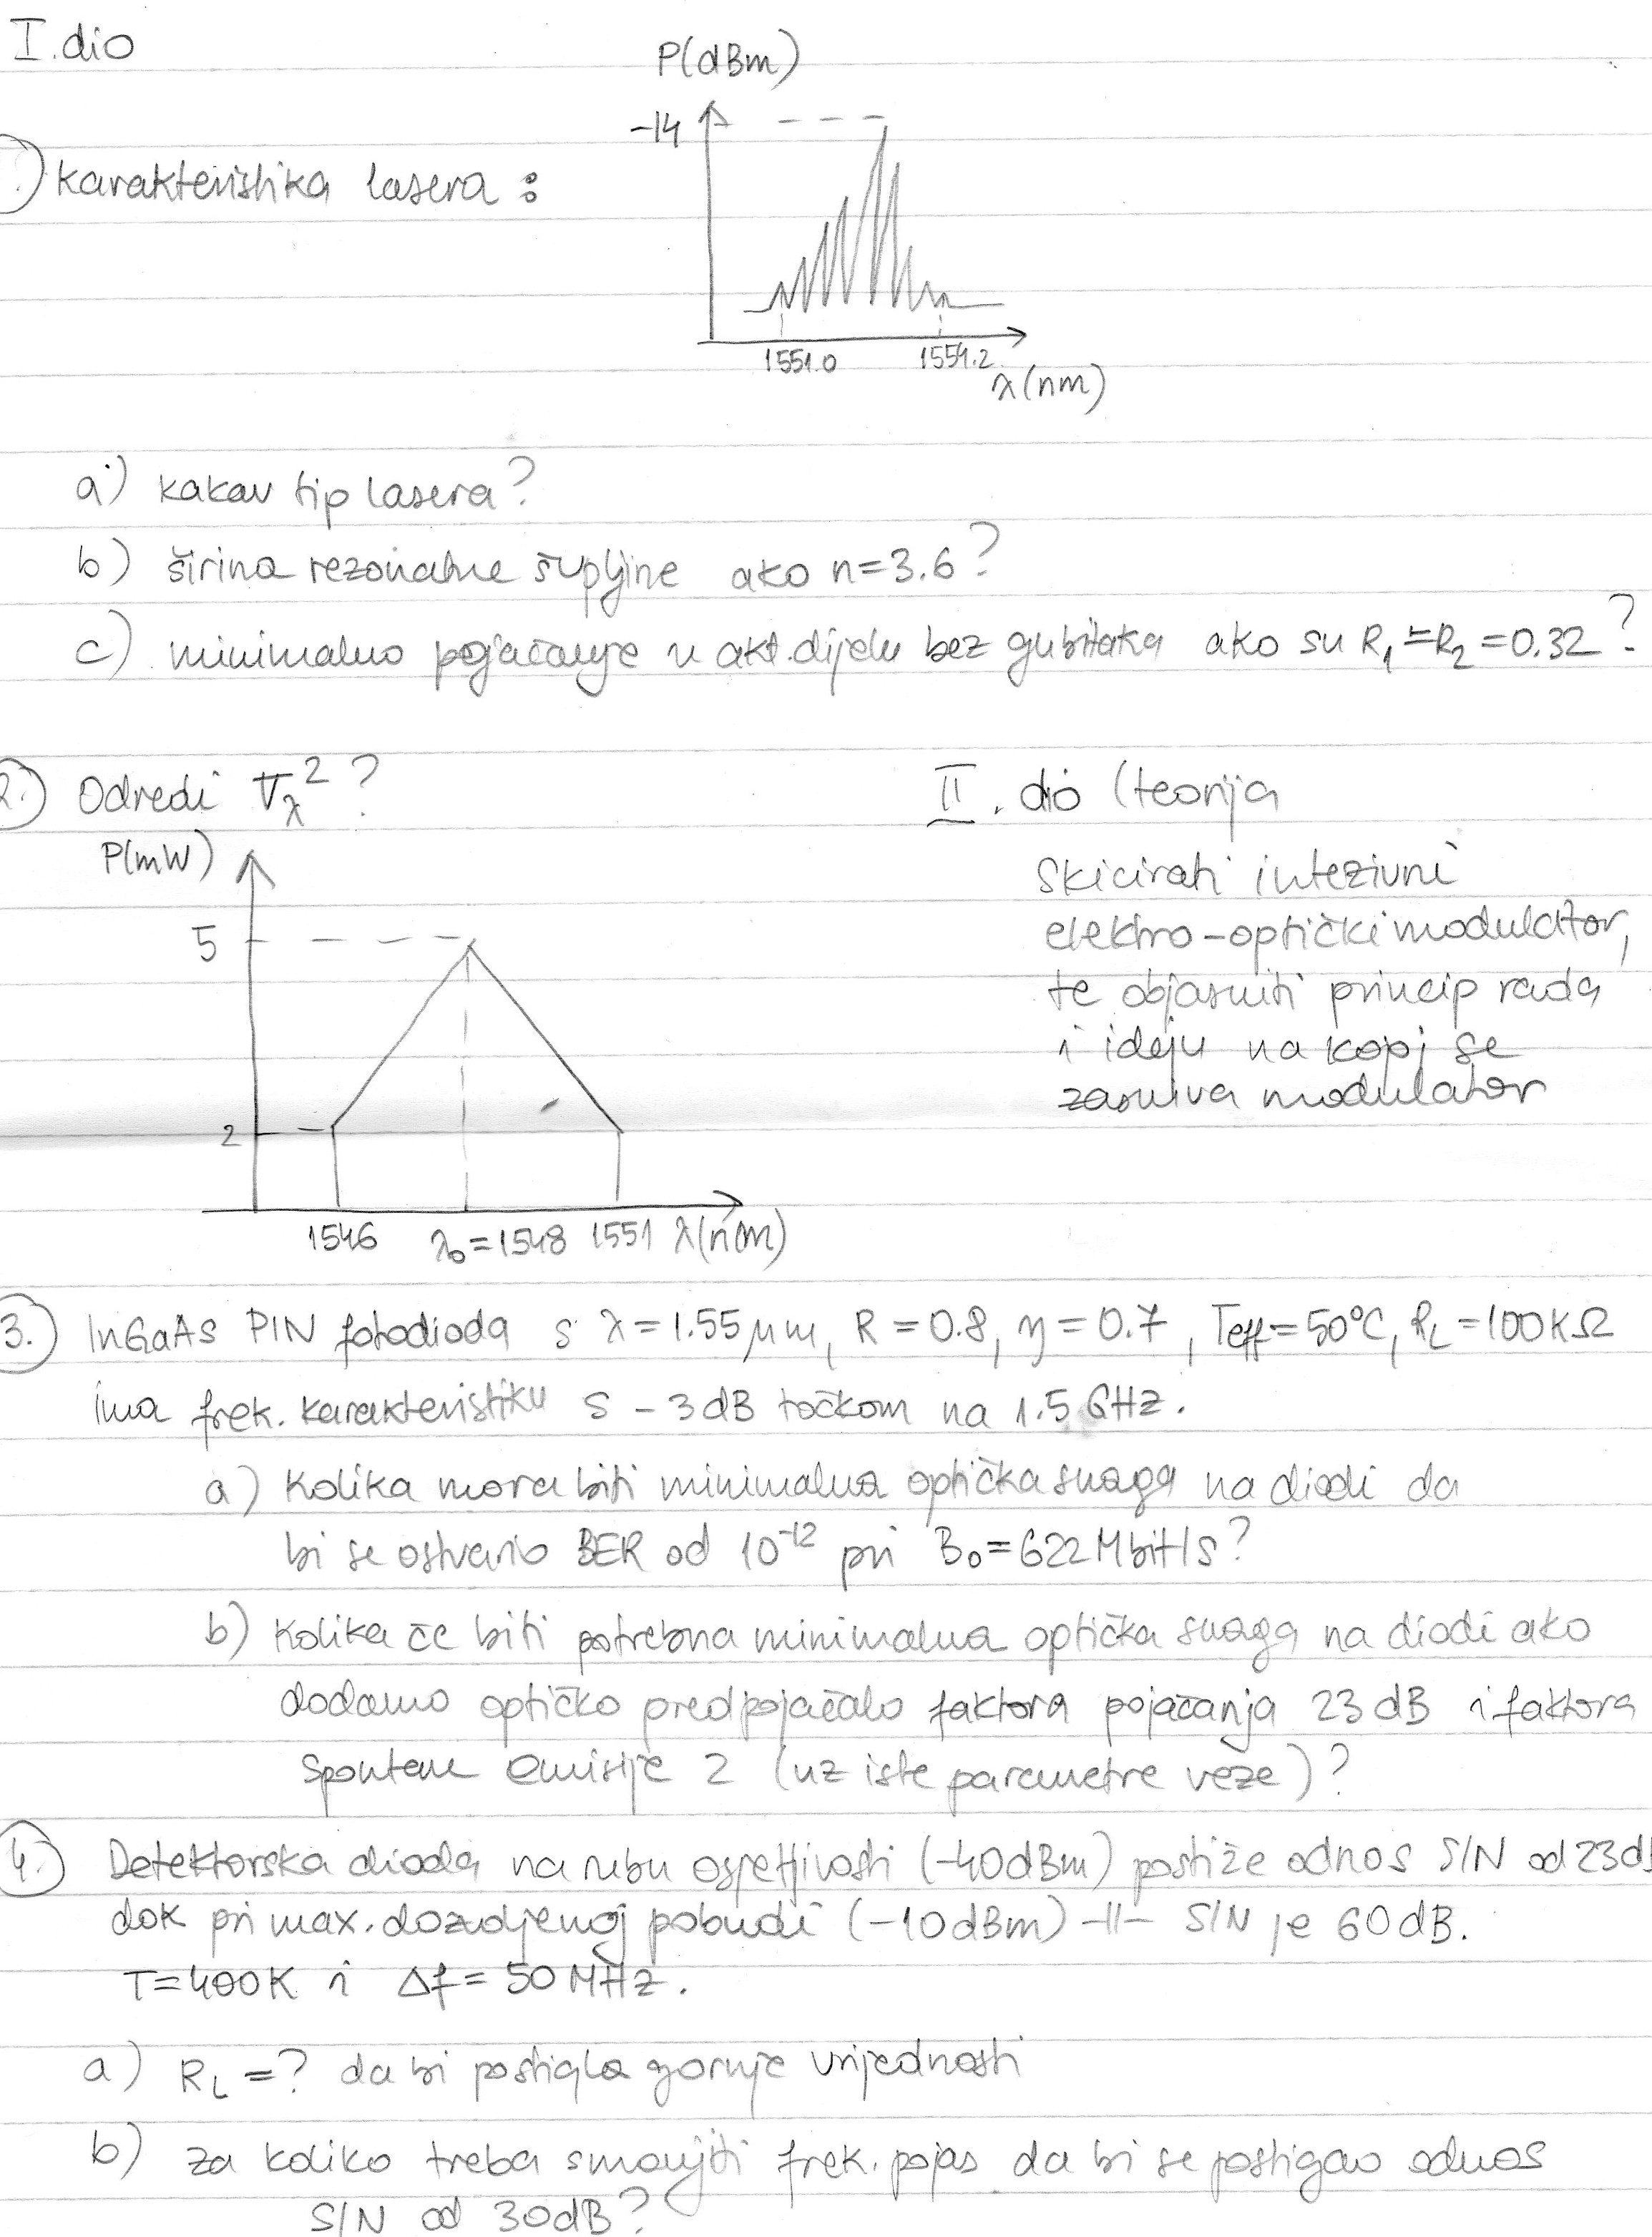 I. dio
P(dBm)
-14
karakteristika lasera :
1551.0 1554.2
λ(nm)
a) kakav tip lasera?
b) širina rezonatne šupljine ako n=3.6?
c) minimalno pojačanje u akt. dijelu bez gubitaka ako su R₁=R₂=0.32?
2.) Odredi σλ²?
P(mW)
5
2
1546 λ₀=1548 1551 λ(nm)
II. dio (teorija
Skicirati intezivni
elektro-optički modulator,
te objasniti princip rada
i ideju na kopj se
zasniva modulator
3.) InGaAs PIN fotodioda s λ=1.55μm, R=0.8, η=0.7, Teff=50°C, RL=100KΩ
ima frek. karakteristiku s -3dB točkom na 1.5 GHz.
a) Kolika mora biti minimalna optička snaga na diodi da
bi se ostvario BER od 10⁻¹² pri B₀=622Mbit/s?
b) Kolika će biti potrebna minimalna optička snaga na diodi ako
dodamo optičko predpojačalo faktora pojačanja 23 dB i faktora
spontane emisije 2 (uz iste parametre veze)?
4.) Detektorska dioda na rubu osjetljivosti (-40dBm) postiže odnos S/N od 23d
dok pri max. dozvoljenoj pobudi (-10dBm) -||- S/N je 60dB.
T=400K i Δf=50MHz.
a) RL=? da bi postigla gornje vrijednosti
b) za koliko treba smanjiti frek. pojas da bi se postigao odnos
S/N od 30dB?